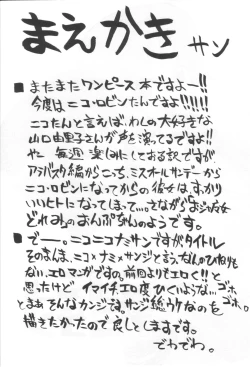 まえかき サン
■ またまたワンピース本ですよー!!
今度はニコ・ロビンたんですよ!!!!!
ニコたんと言えば、わしの大好きな
山口由里子さんが声を演ってるですよ!!
やー 毎週 楽しみにしておる訳ですが、
アラバスタ編からこっち、ミスオールサンデーから
ニコ・ロビンになってからの彼女は、すっかり
いいヒトになってしまって…。さながら
どれみのおんぷちゃんのようです。
■ でー。ニコニコナミサンですがタイトル
そのまんま、ニコ×ナミ×サンジと言う、なんのひねりも
ない、エロマンガですの。前回よりもエロく!!と
思ったけど イマイチエロ度ひくいような…。ゴホ
とまあそんなカンジです。サンジ総ウケなのを ゴホ。
描きたかったので良しとしますです。
でわでわ。